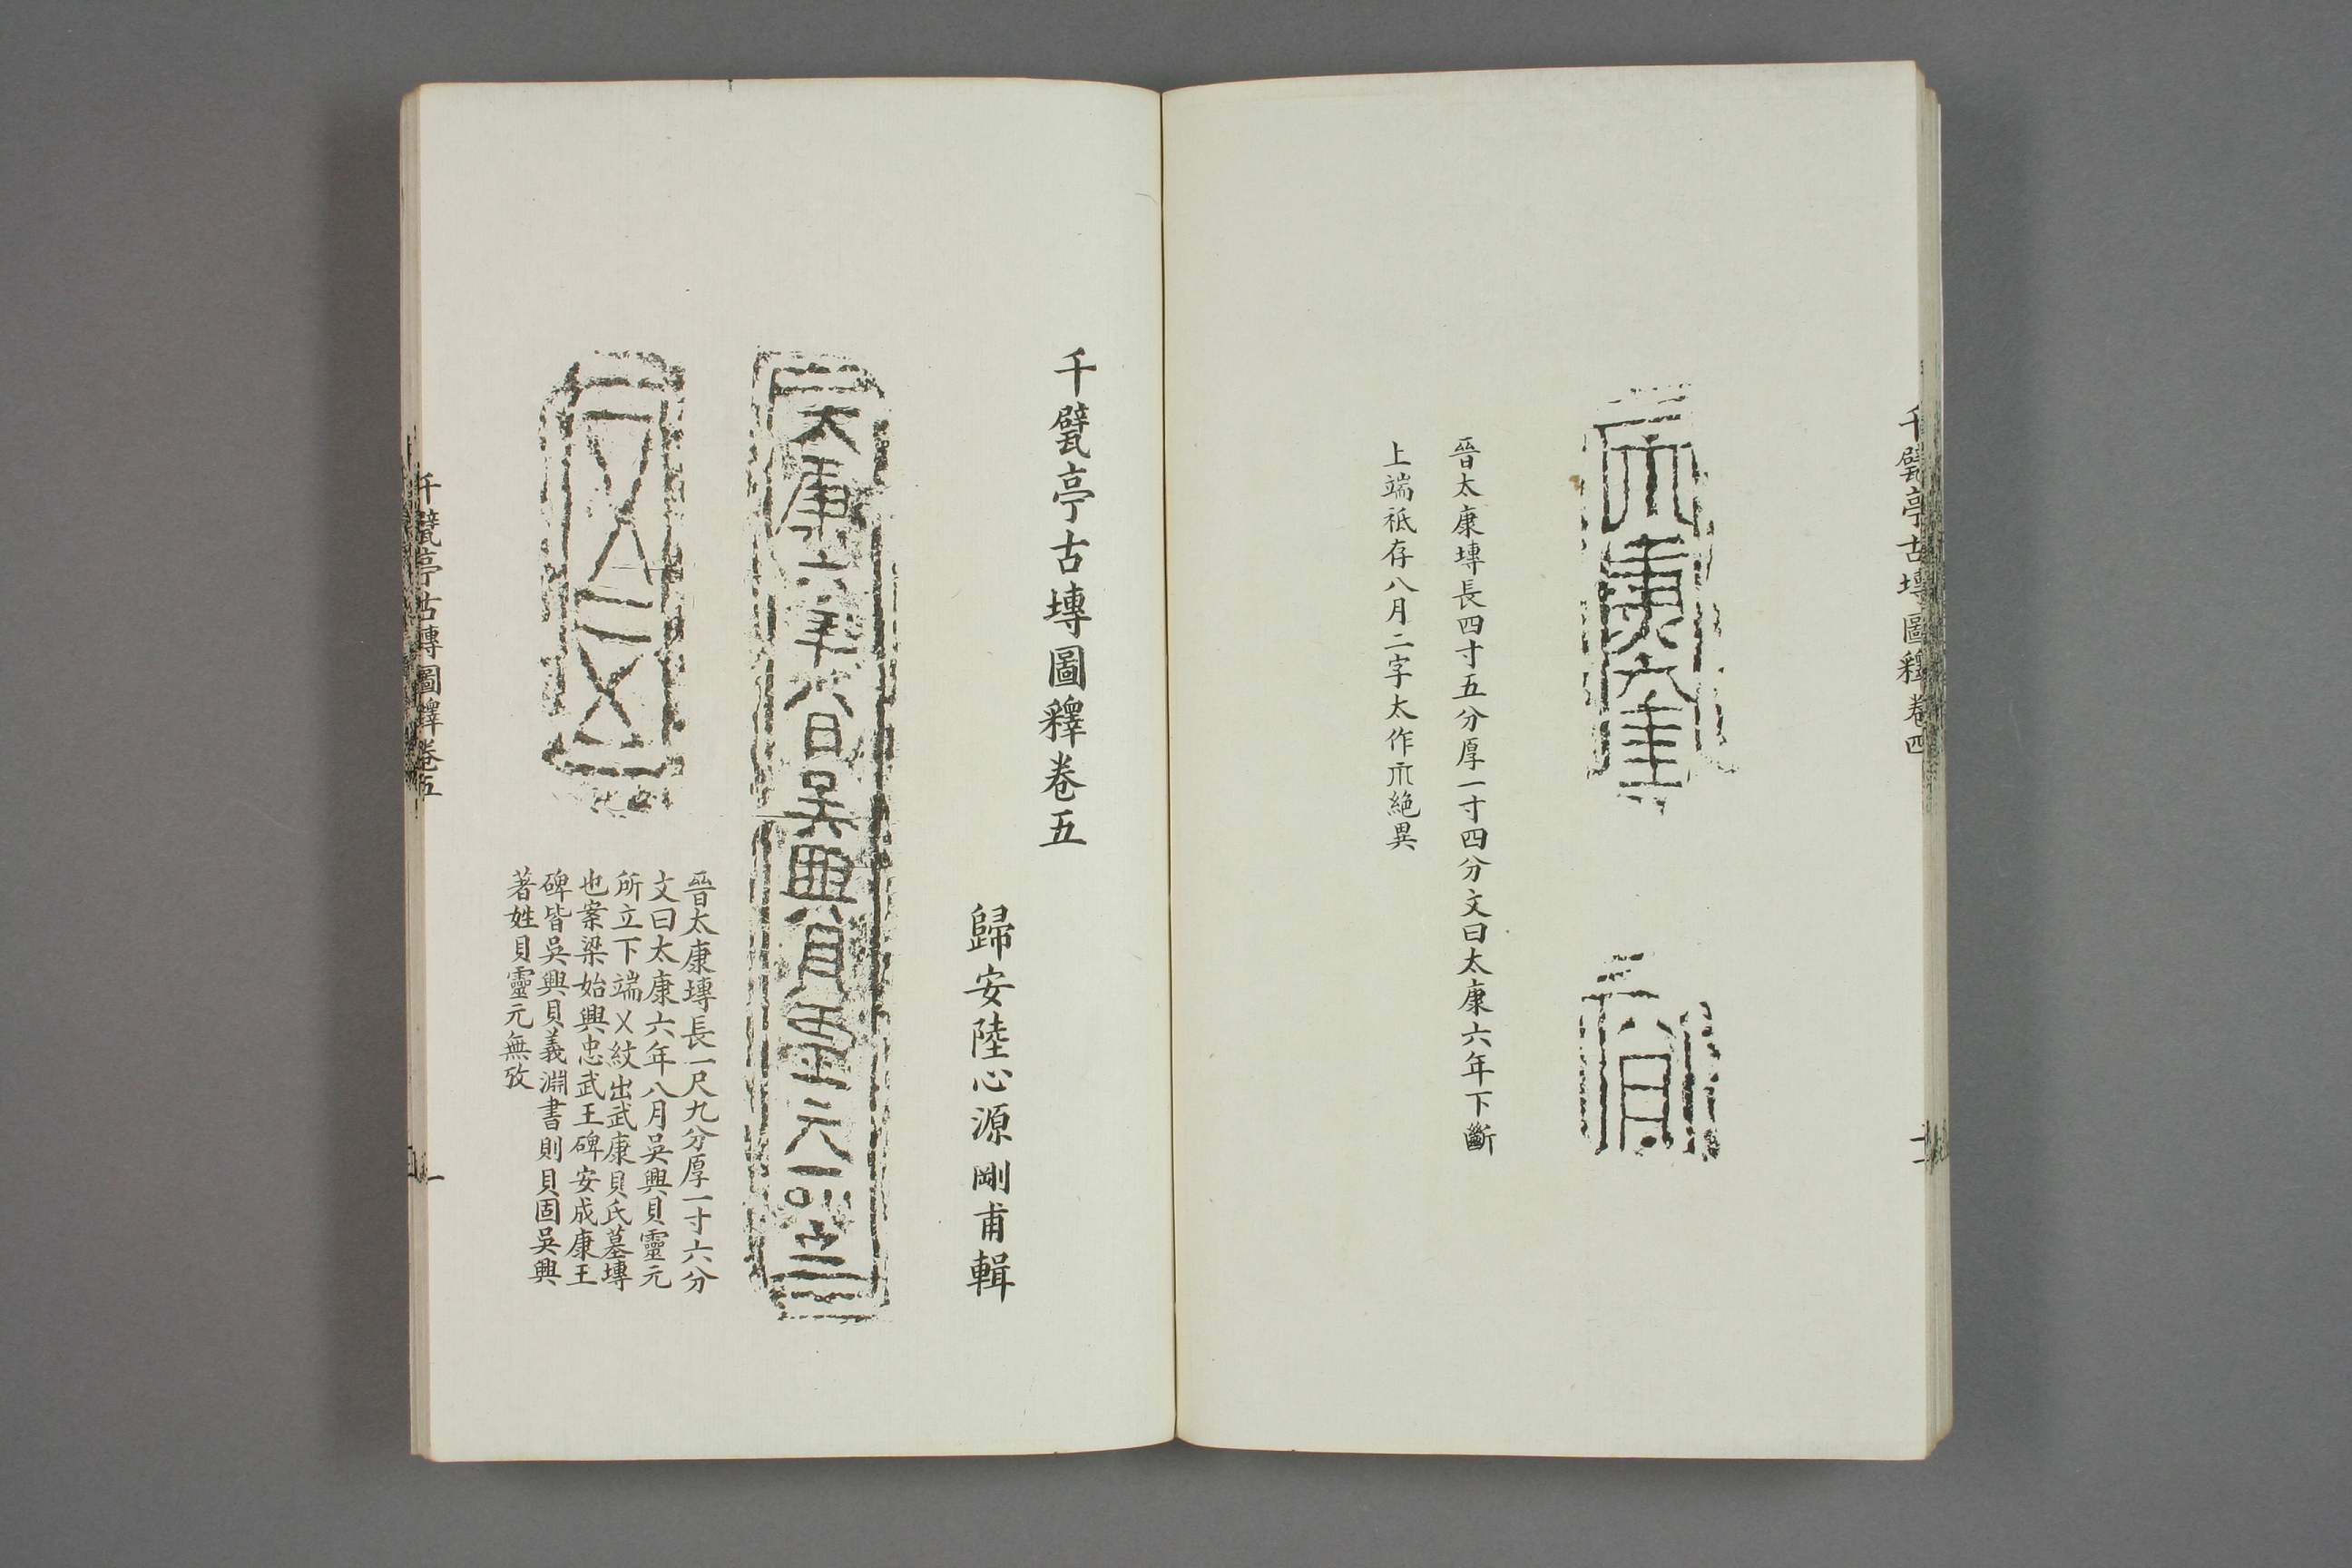 千甓亭古塼圖釋卷四
太康六年
八月
晉太康塼長四寸五分厚一寸四分文曰太康六年下斷
上端祇存八月二字太作𠕀絕異
千甓亭古塼圖釋卷五
歸安陸心源剛甫輯
太康六年八月吳興貝靈元
晉太康塼長一尺九分厚一寸六分
文曰太康六年八月吳興貝靈元
所立下端乂紋出武康貝氏墓塼
也案梁始興忠武王碑安成康王
碑皆吳興貝義淵書則貝固吳興
著姓貝靈元無攷
千甓亭古塼圖釋卷五
一